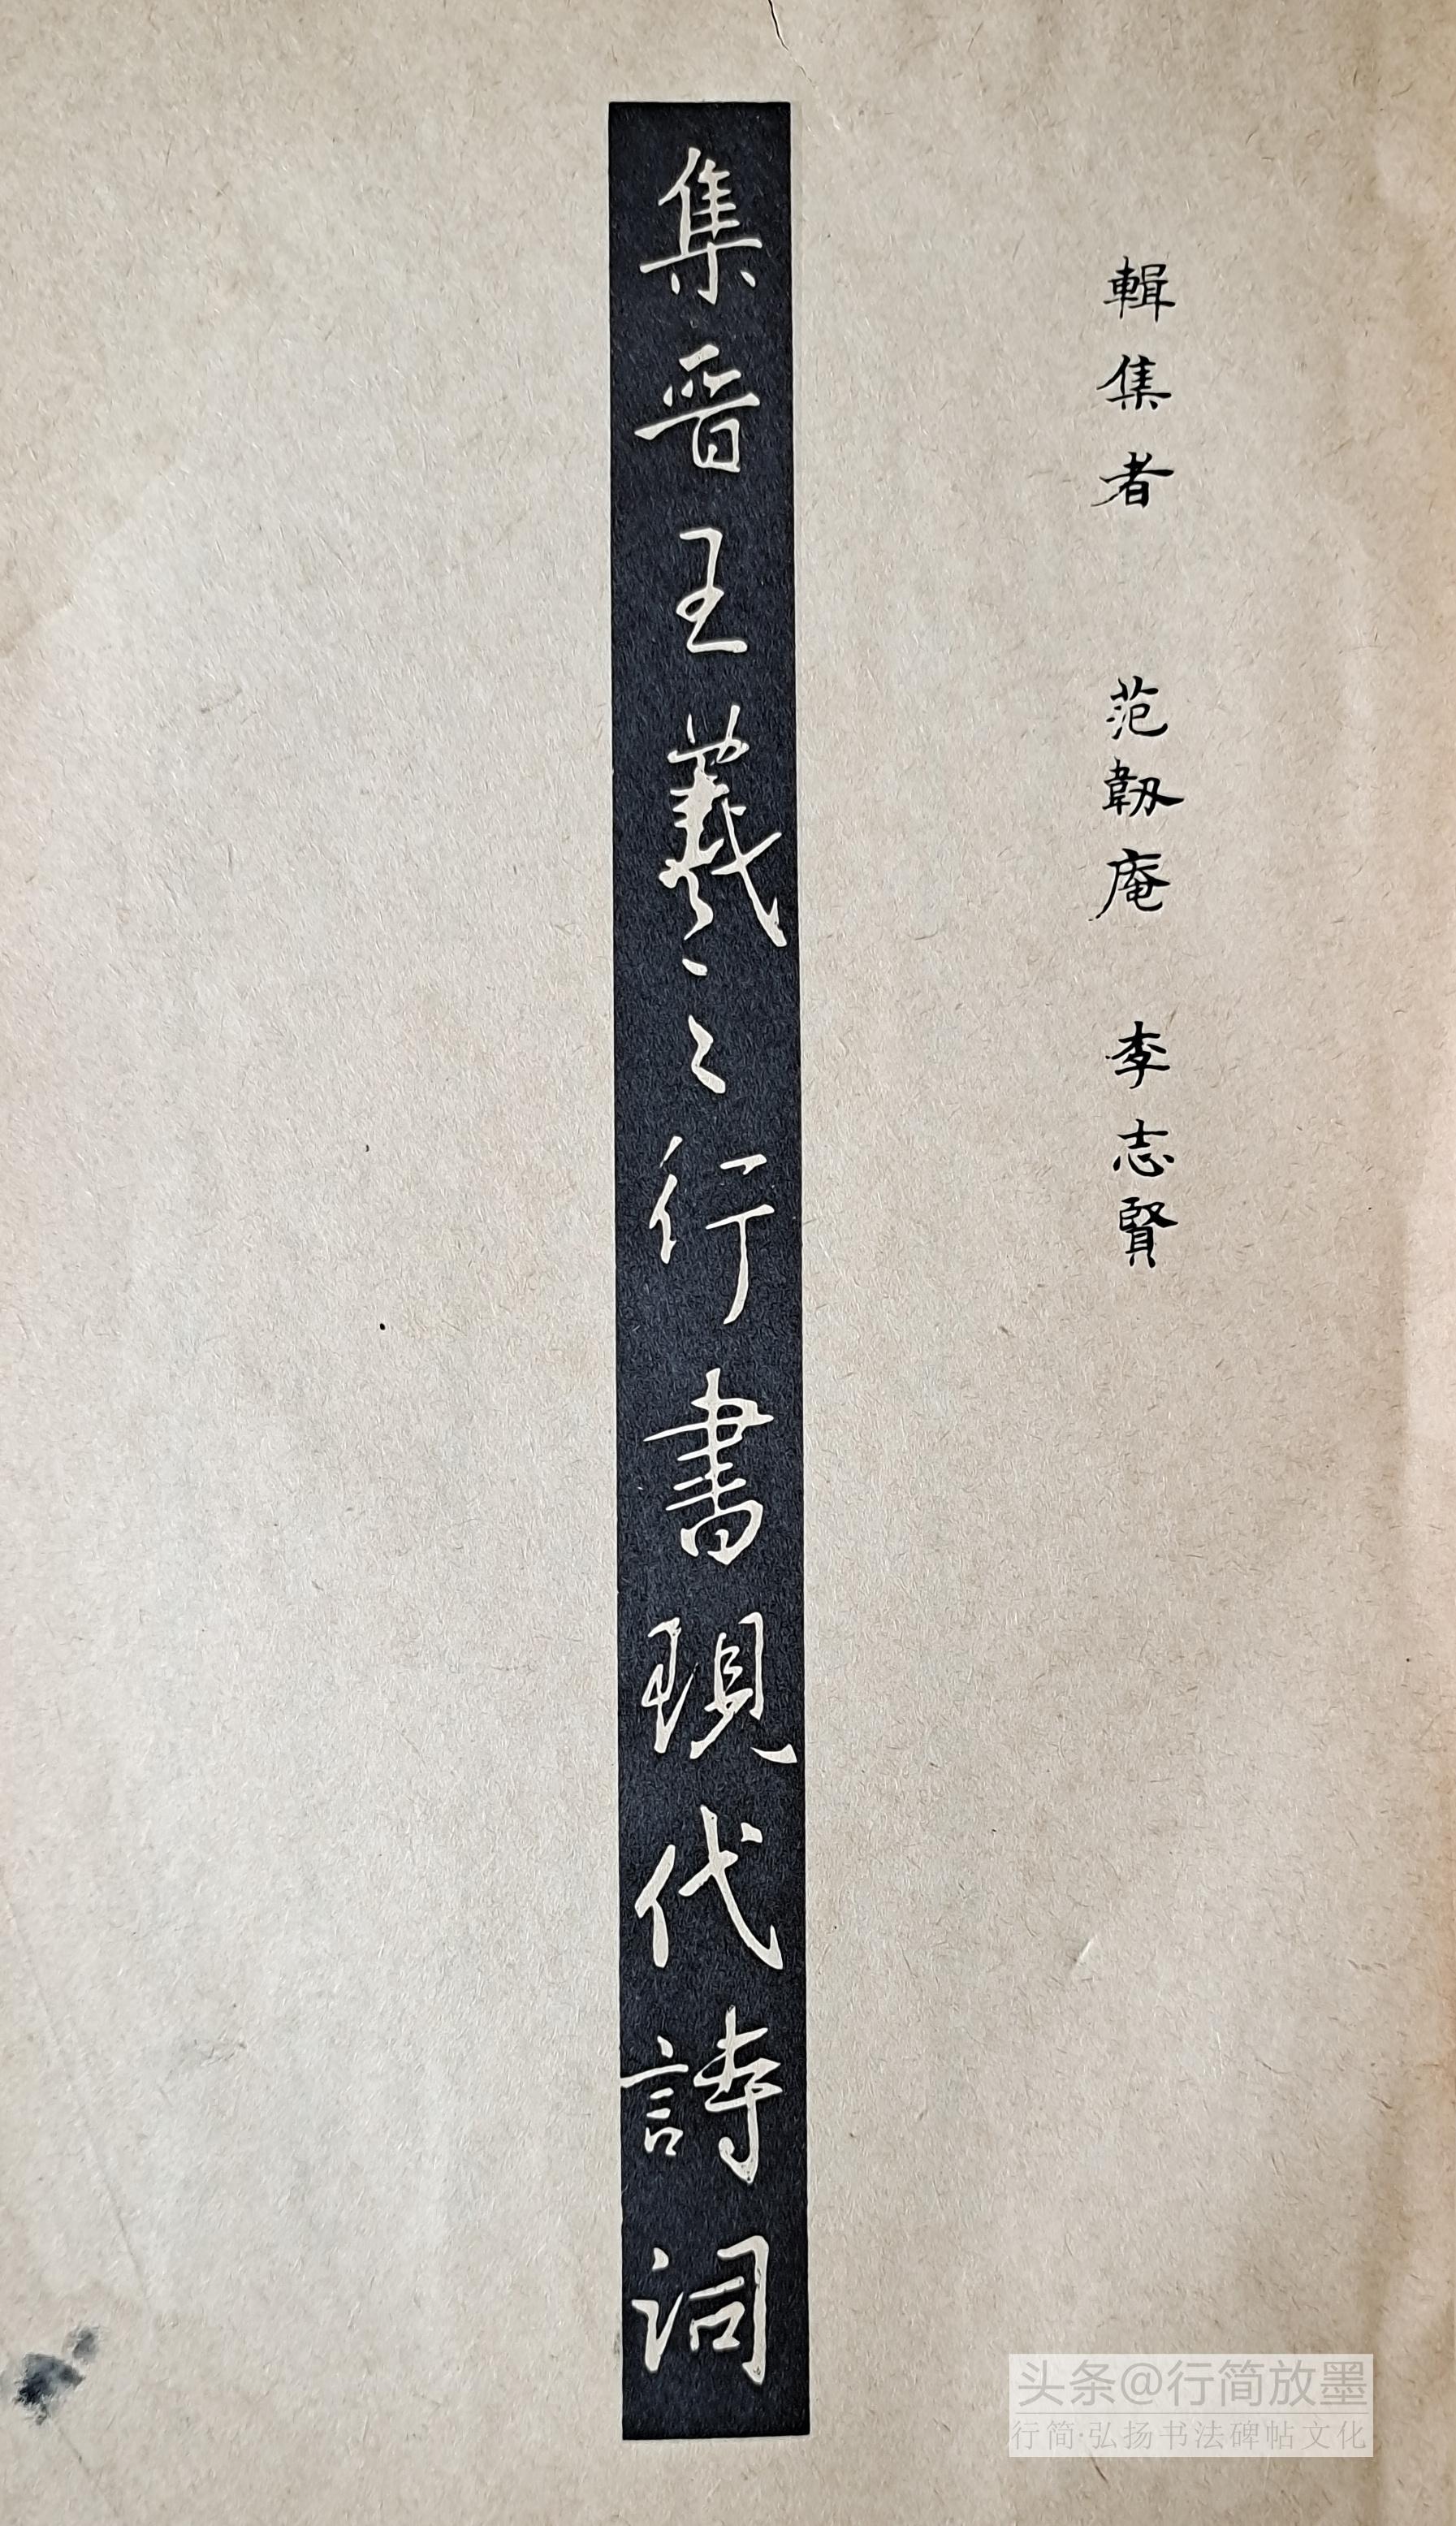 輯集者 范韌庵 李志賢
集晋王羲之行書現代詩詞
头条@行简放墨
行简·弘扬书法碑帖文化